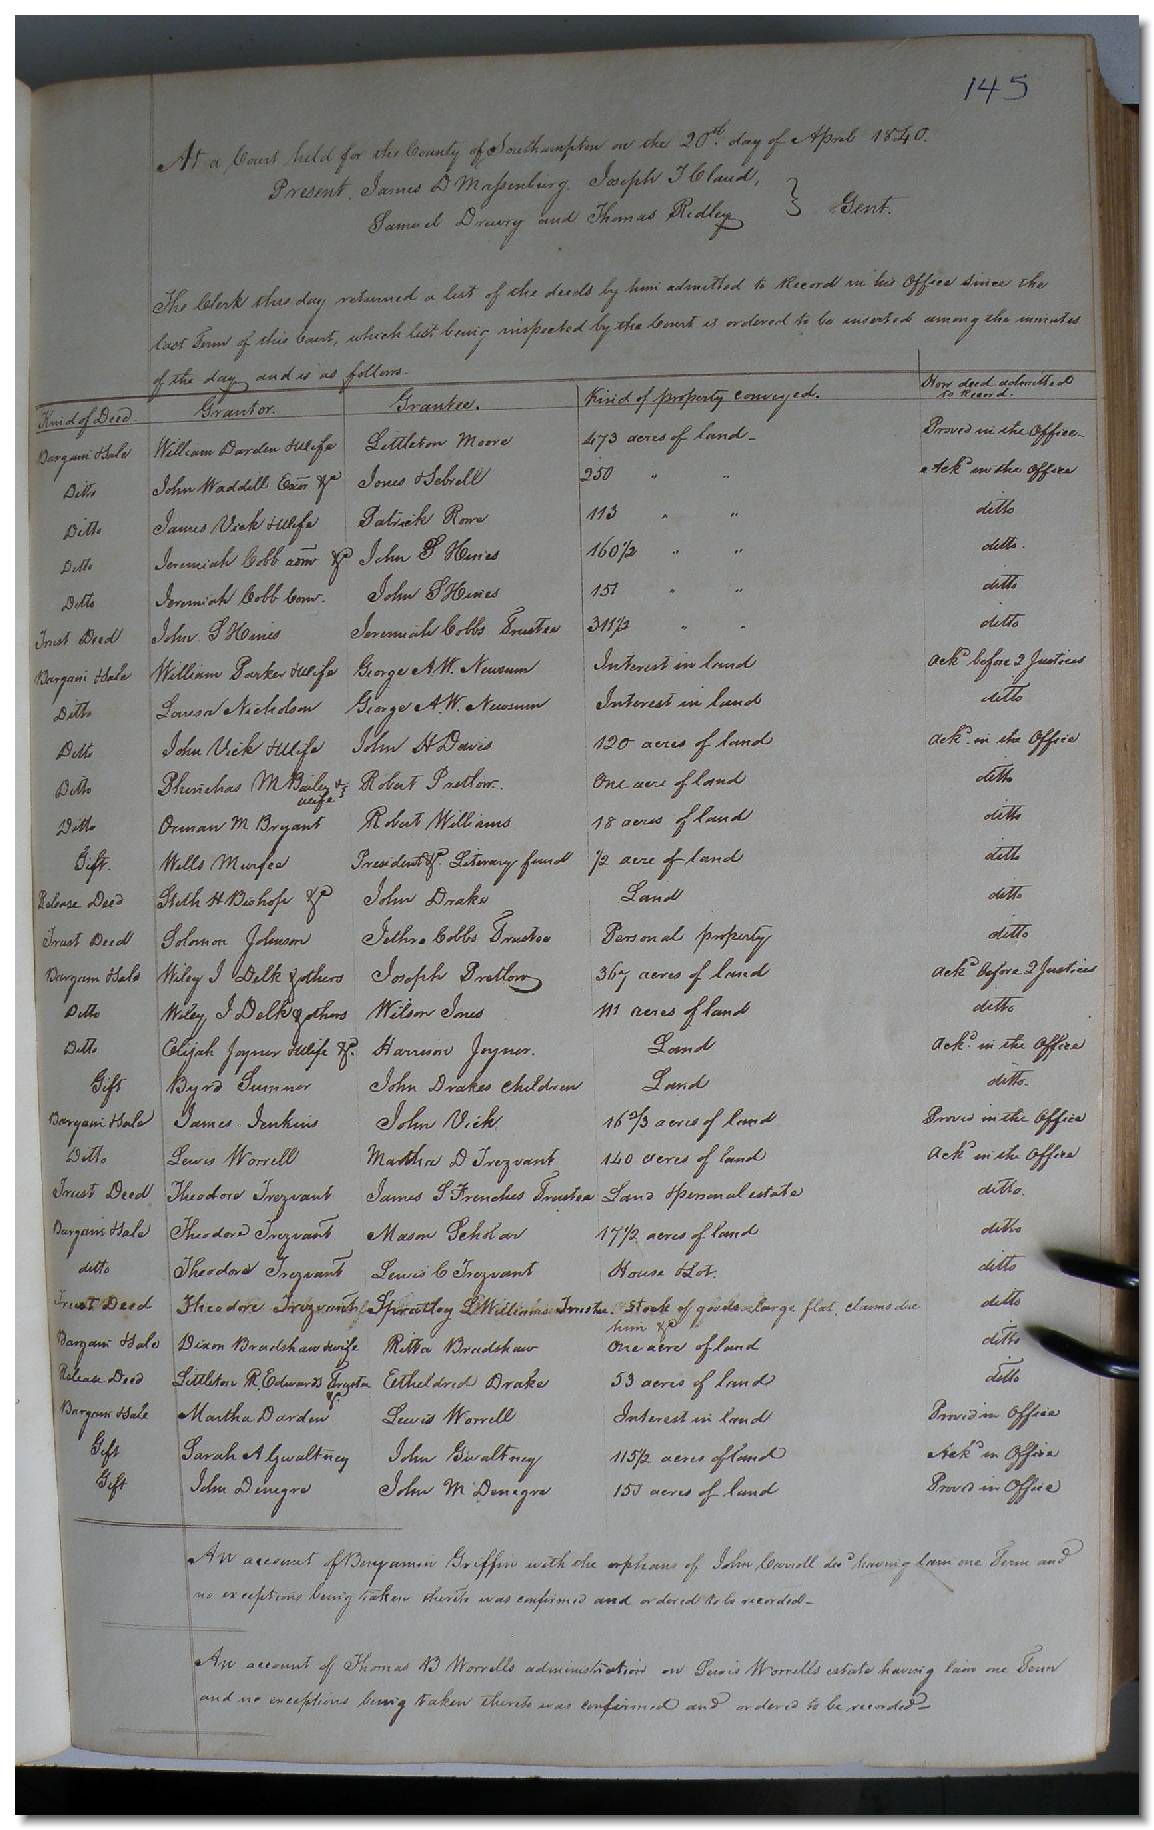 145
At a Court held for the County of Southampton on the 20th. day of April 1840.
Present, James D Massenburg. Joseph T Claud,
Samuel Drewry and Thomas Ridley } Gent.
The Clerk this day returned a list of the deeds by him admitted to Record in his Office since the
last Term of this Court, which list being inspected by the Court is ordered to be inserted among the minutes
of the day and is as follows.
Kind of Deed Grantor. Grantee. Kind of property conveyed. How deed admitted to Record.
Bargain & Sale William Darden & Wife Littleton Moore 473 acres of land - Proved in the Office
Ditto John Waddill Exor &c Jones & Sebrell 250 " " Ackd in the Office
Ditto James Vick & Wife Patrick Rowe 113 " " ditto
Ditto Jeremiah Cobb admr &c John S Hines 160 1/2 " " ditto.
Ditto Jeremiah Cobb Comr. John S Hines 151 " " ditto
Trust Deed John S Hines Jeremiah Cobbs Trustee 311 1/2 " " ditto
Bargain & Sale William Parker & Wife George A. W. Newsum Interest in land ackd before 2 Justices
Ditto Louisa Nicholson George A. W. Newsum Interest in land ditto
Ditto John Vick & Wife John H Davis 120 acres of land ackd in the Office
Ditto Phinehas M Bailey & wife Robert Pretlow. One acre of land ditto
Ditto Orman M Bryant Robert Williams 18 acres of land ditto
Gift. Wells Murfee President &c Literary fund 1/2 acre of land ditto
Release Deed Steth H Bishop &c John Drake Land ditto
Trust Deed Solomon Johnson Jethro Cobbs Trustee Personal property ditto
Bargain & Sale Wiley J Delk & others Joseph Pretlow 367 acres of land ackd before 2 Justices
Ditto Wiley J Delk & others Wilson Jones 111 acres of land ditto
Ditto Elijah Joyner & Wife &c. Harrison Joyner. Land ackd in the Office
Gift Byrd Sumner John Drakes children Land ditto.
Bargain & Sale James Jenkins John Vick 16 2/3 acres of land Proved in the Office
Ditto Lewis Worrell Martha D Trezvant 140 acres of land ackd in the Office
Trust Deed Theodore Trezvant James S Frenches Trustee Land & personal estate ditto.
Bargain & Sale Theodore Trezvant Mason Scholar 17 1/2 acres of land ditto
ditto Theodore Trezvant Lewis C Trezvant House & Lot. ditto
Trust Deed Theodore Trezvant Spratley Williams Trustee. Stock of goods large flat, claims due him &c ditto
Bargain & Sale Dixon Bradshaw & wife Ritta Bradshaw One acre of land ditto
Release Deed Littleton R. Edwards Trustee &c Etheldred Drake 53 acres of land ditto
Bargain & Sale Martha Darden Lewis Worrell Interest in land Proved in Office
Gift Sarah A Gwaltney John Gwaltney 115 1/2 acres of land Ackd in Office
Gift John Denegre John M Denegre 151 acres of land Proved in Office
An account of Benjamin Griffin with the orphans of John Carroll decd having lain one Term and
no exceptions being taken thereto was confirmed and ordered to be recorded -
An account of Thomas B Worrells administration on Lewis Worrells estate having lain one Term
and no exceptions being taken thereto was confirmed and ordered to be recorded -